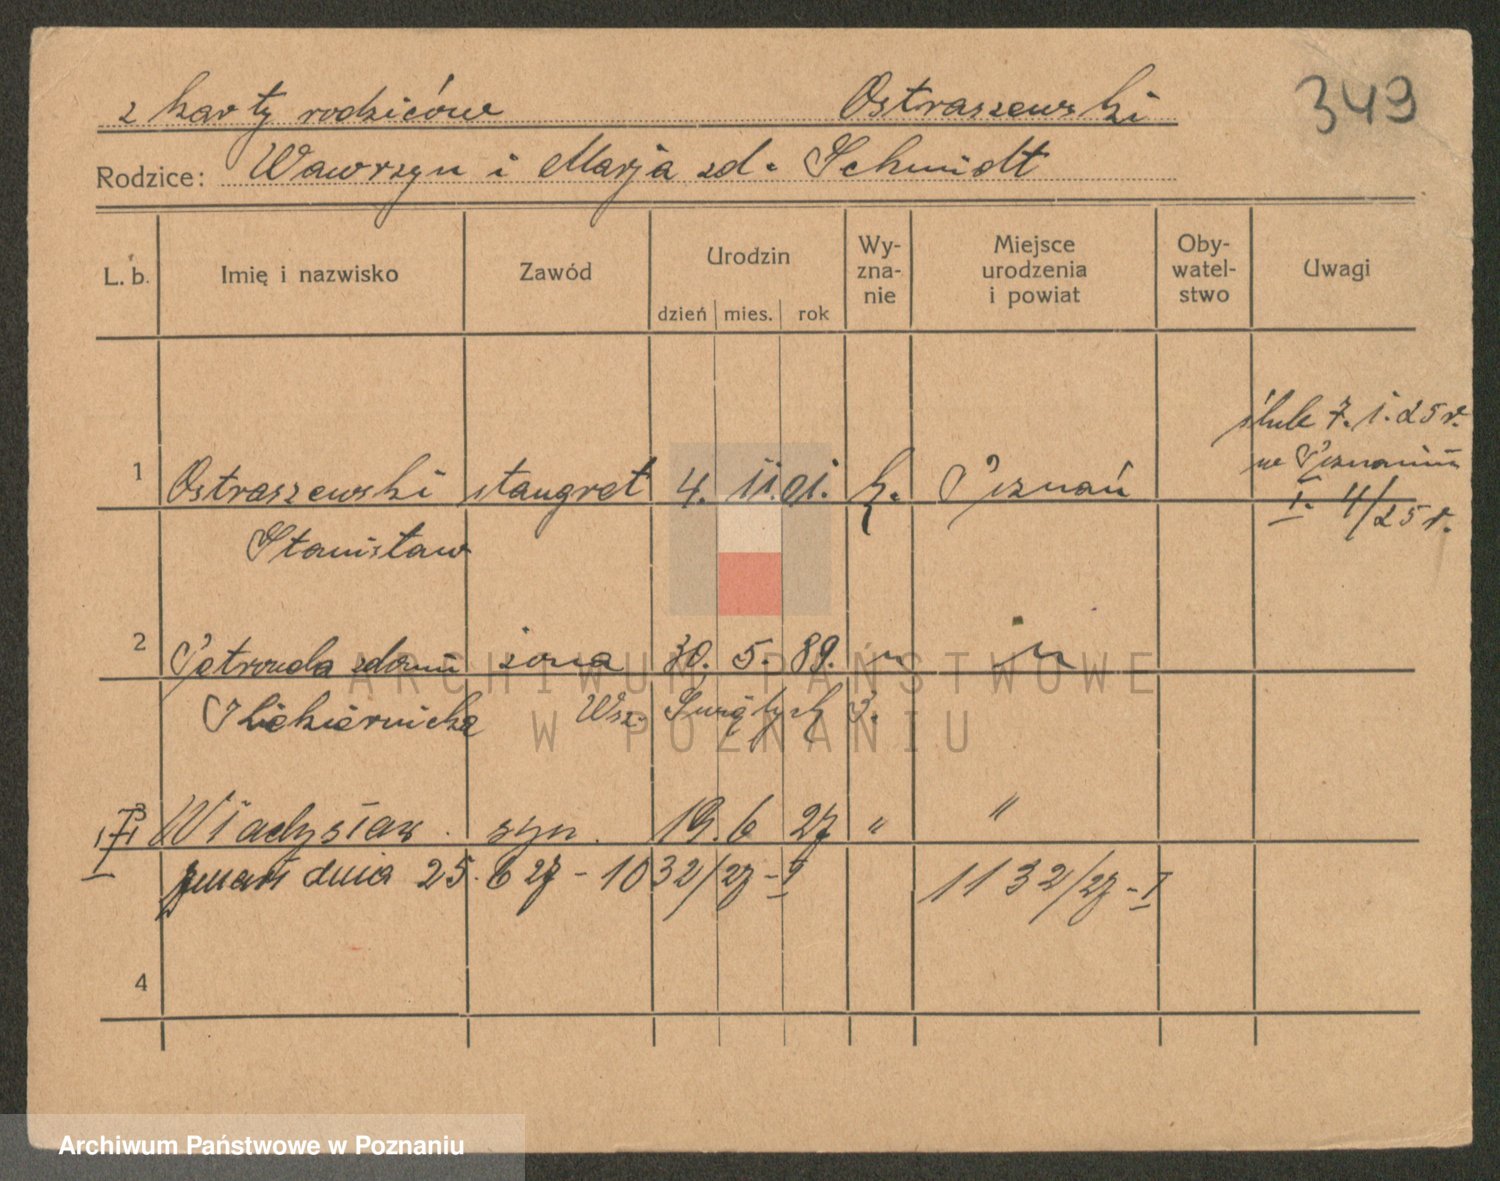 z karty rodziców Ostraszewski 349
Rodzice: Wawrzyn i Marja zd. Schmidt
L. b. Imię i nazwisko Zawód Urodzin Wy-zna-nie Miejsce urodzenia i powiat Oby-watel-stwo Uwagi
dzień mies. rok
ślub 7.1.25 r.
w Poznaniu
1 Ostraszewski stangret 4. 11. 01. k. Poznań
I. 4/25 r.
Stanisław
2 zdomu żona 30. 5. 89. " "
3 Władysław syn. 19. 6 27 " "
zmarł dnia 25. 6 27 - 1032/27 - I 1132/27 - I
4
ARCHIWUM PAŃSTWOWE
W POZNANIU
Archiwum Państwowe w Poznaniu